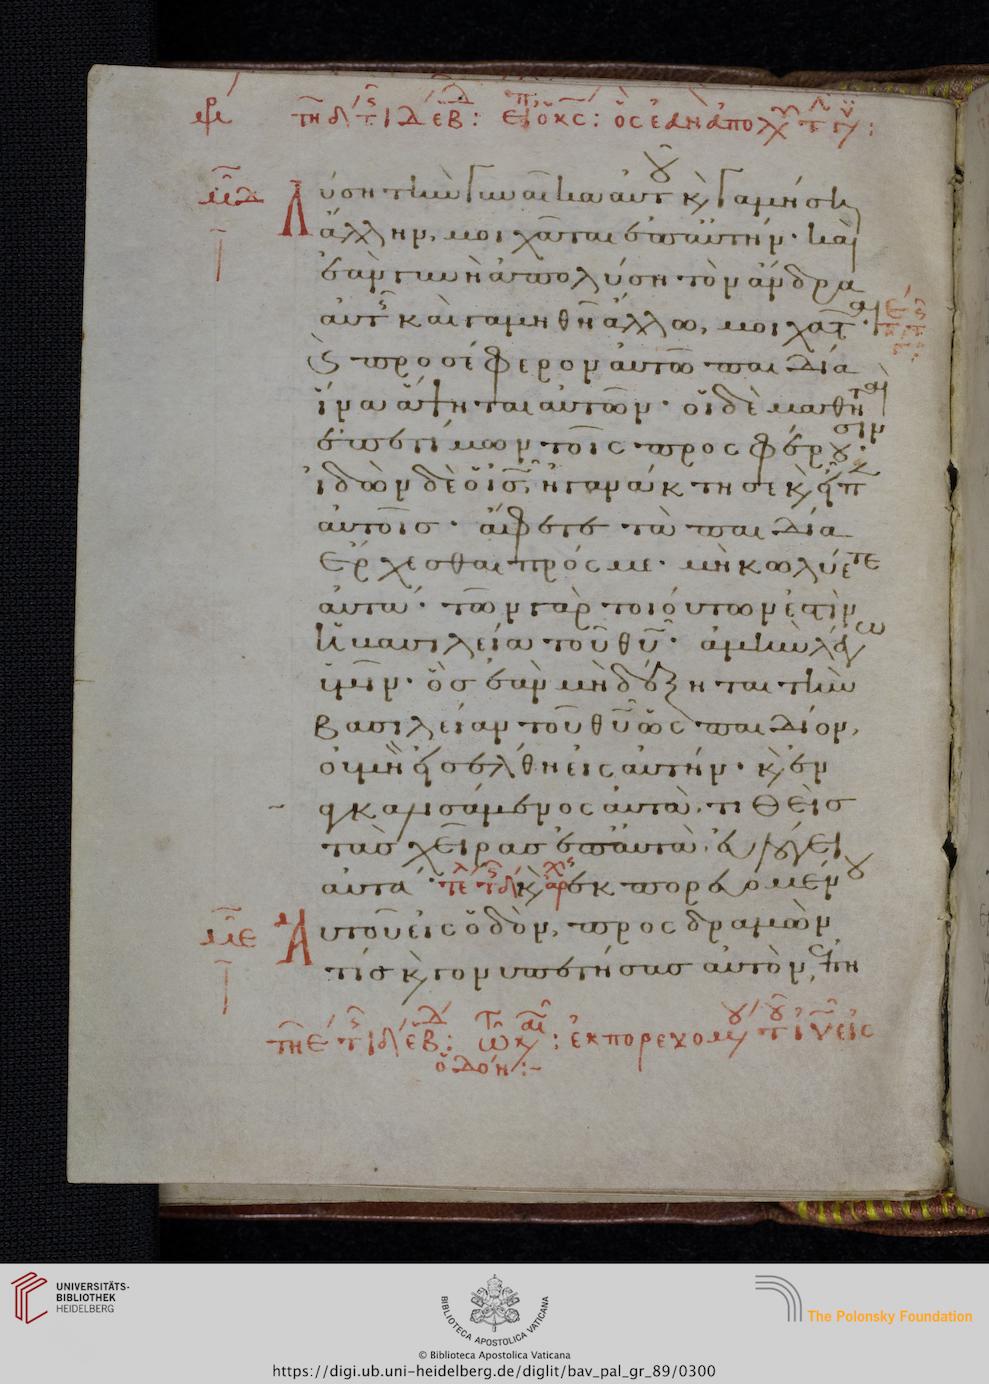 λύση τὴν γυναῖκα αὐτοῦ κ γαμήση
ἄλλην, μοιχᾶται ἐπ αὐτήν· καὶ
ἐὰν γυνὴ ἀπολύση τὸν ἄνδρα
αὐτῆς καὶ γαμηθῆ ἄλλω, μοιχᾶται·
κ προσέφερον αὐτῶ παιδία
ἵνα ἅψηται αὐτῶν· οἱ δὲ μαθηταὶ
ἐπετίμων τοῖς προσφέρουσιν·
ἰδὼν δὲ ὁ ις, ἠγανάκτησε κ εἶπ
αὐτοῖς· ἄφετε τὰ παιδία
ἔρχεσθαι πρός με· μὴ κωλύετε
αὐτά· τῶν γὰρ τοιούτων ἐστὶν
ἡ βασιλεία τοῦ θυ· ἀμὴν λέγω
ὑμῖν· ὃς ἐὰν μὴ δέξηται τὴν
βασιλείαν τοῦ θυ ὡς παιδίον,
οὐ μὴ εἰσέλθη εἰς αὐτήν· κ ἐν
αγκαλισάμενος αὐτὰ, τιθεὶς
τὰς χεῖρας ἐπ αὐτὰ, εὐλόγει
αὐτά· κ ἐκπορευομένου
αὐτοῦ εἰς ὁδὸν, προσδραμὼν
τίς κ γονυπετήσας αὐτὸν, ἐπη
ἐκπορευομ τ ιυ εἰς
ὁδόν :-
UNIVERSITÄTS-
BIBLIOTHEK
HEIDELBERG
BIBLIOTECA APOSTOLICA VATICANA
The Polonsky Foundation
© Biblioteca Apostolica Vaticana
https://digi.ub.uni-heidelberg.de/diglit/bav_pal_gr_89/0300